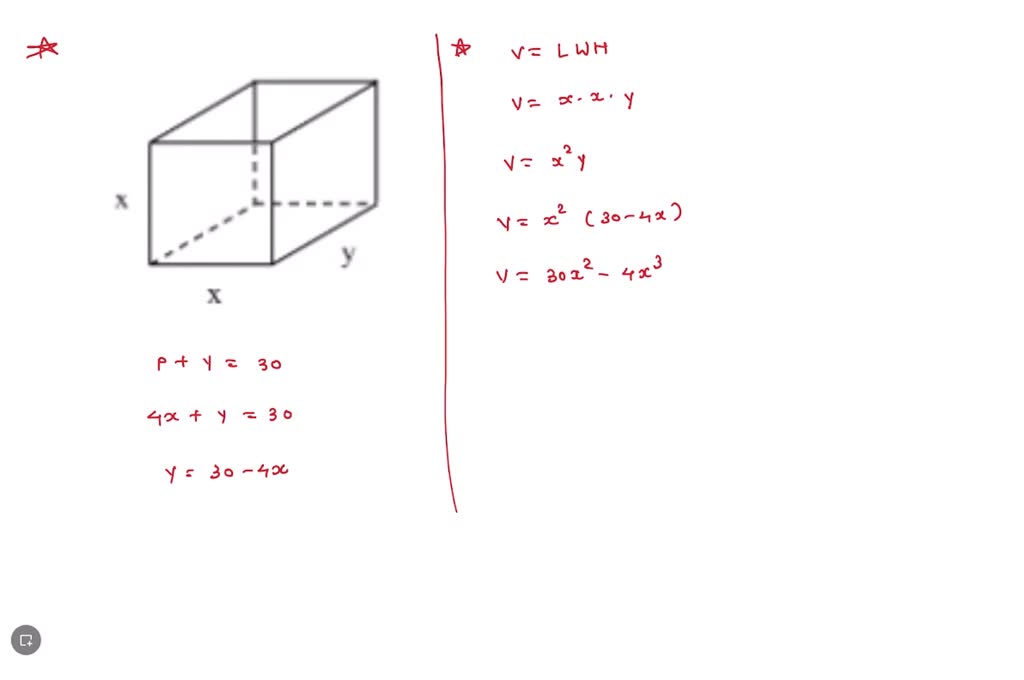 x
y
x
P + y = 30
4x + y = 30
y = 30 - 4x
V = LWH
V = x · x · y
V = x²y
V = x² (30 - 4x)
V = 30x² - 4x³